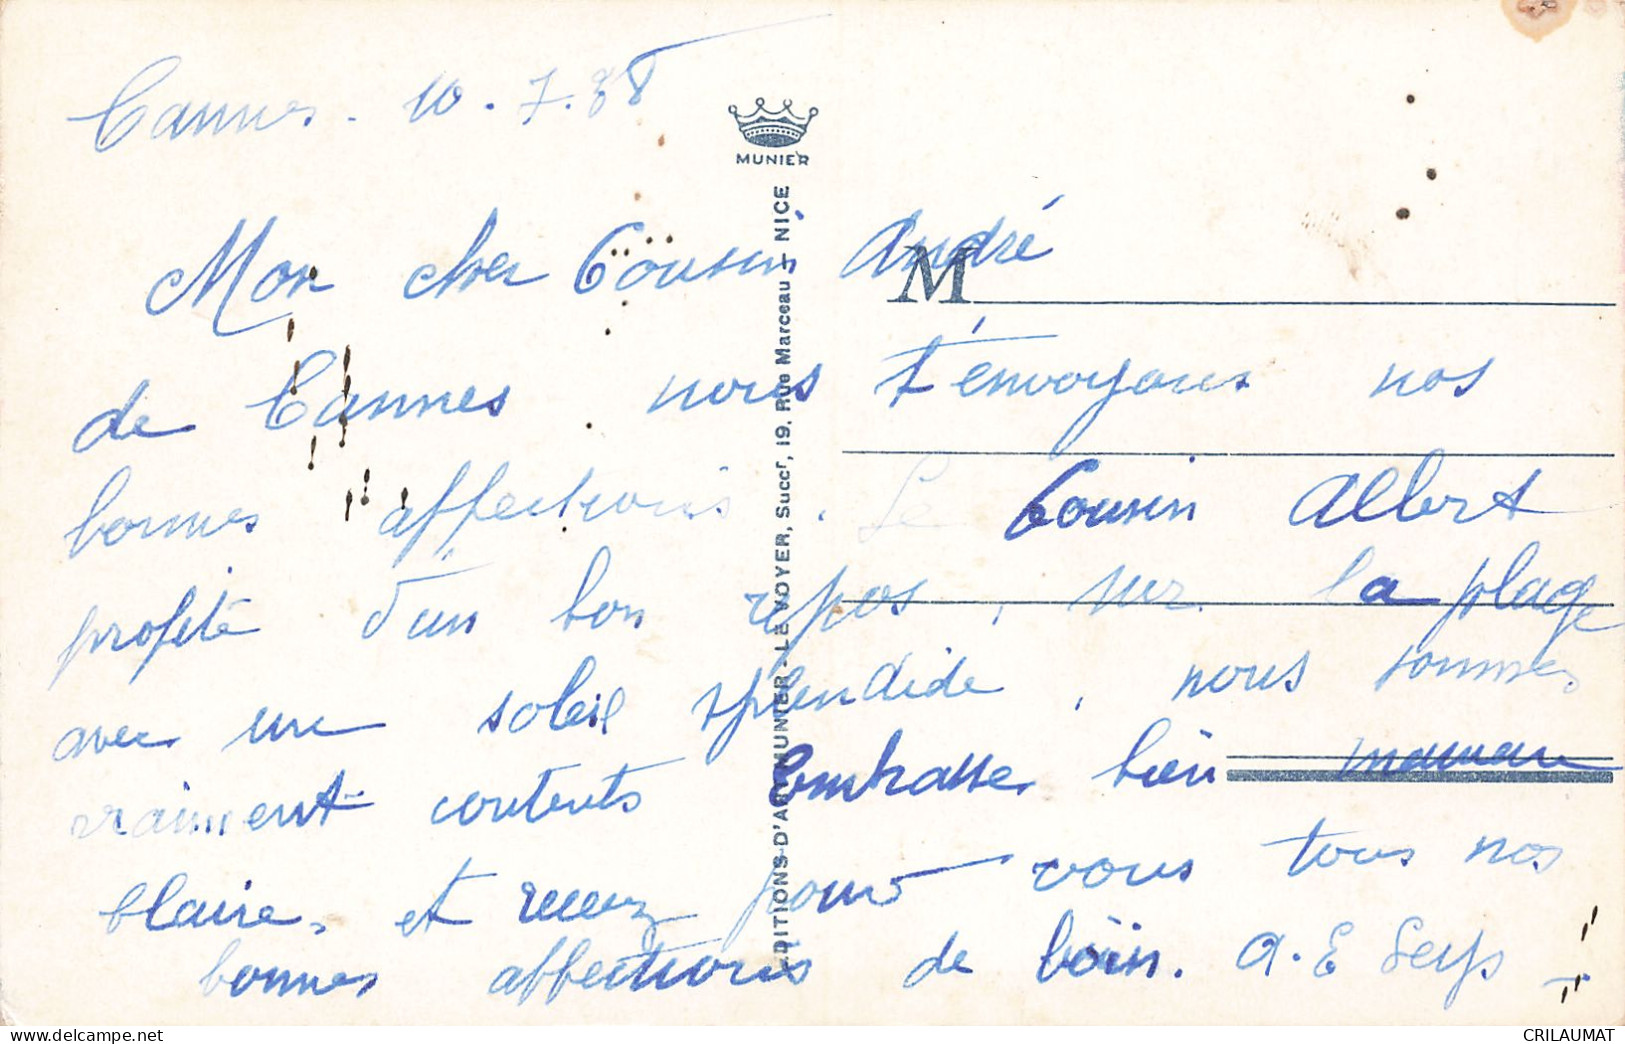 Cannes. 10.7.38
MUNIER
Mon cher Cousin André
M
de Cannes nous t'envoyons nos
bonnes affections. Le Cousin Albert
profite d'un bon repos, sur la plage
avec un soleil splendide, nous sommes
vraiment contents Embrasse bien maman
Claire, et recevez pour vous tous nos
bonnes affections de loin. A. E
EDITIONS D'ART MUNIER - LE VOYER, Succr, 19, Rue Marceau - NICE
CRILAUMAT